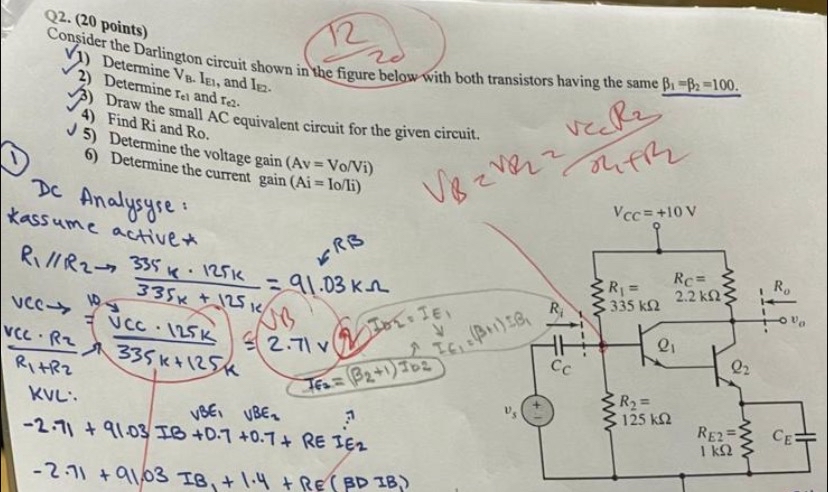 Q2. (20 points)
12/20
Consider the Darlington circuit shown in the figure below with both transistors having the same β₁ =β₂ =100.
1) Determine V_B. I_E1, and I_E2.
2) Determine r_e1 and r_e2.
3) Draw the small AC equivalent circuit for the given circuit.
4) Find Ri and Ro.
5) Determine the voltage gain (Av = Vo/Vi)
6) Determine the current gain (Ai = Io/Ii)
V_B = V_R2 = VccR2 / R1+R2
1
DC Analysyse :
*assume active*
R1 // R2 → 335K · 125K / 335K + 125K = 91.03 KΩ
RB
VCC → 10
VCC · R2 / R1+R2 → = VCC · 125K / 335K+125K = 2.71 V
VB
IB2 = IE1
IE1 = (β+1) IB1
IE2 = (β2+1) IB2
KVL:
VBE1 VBE2
-2.71 + 91.03 IB + 0.7 + 0.7 + RE IE2
-2.71 + 91.03 IB1 + 1.4 + RE (βD IB1)
V_CC = +10 V
R₁ =
335 kΩ
R_C =
2.2 kΩ
R_o
R_i
v_o
Q₁
C_C
Q₂
R₂ =
125 kΩ
v_s
+
−
R_E2 =
1 kΩ
C_E